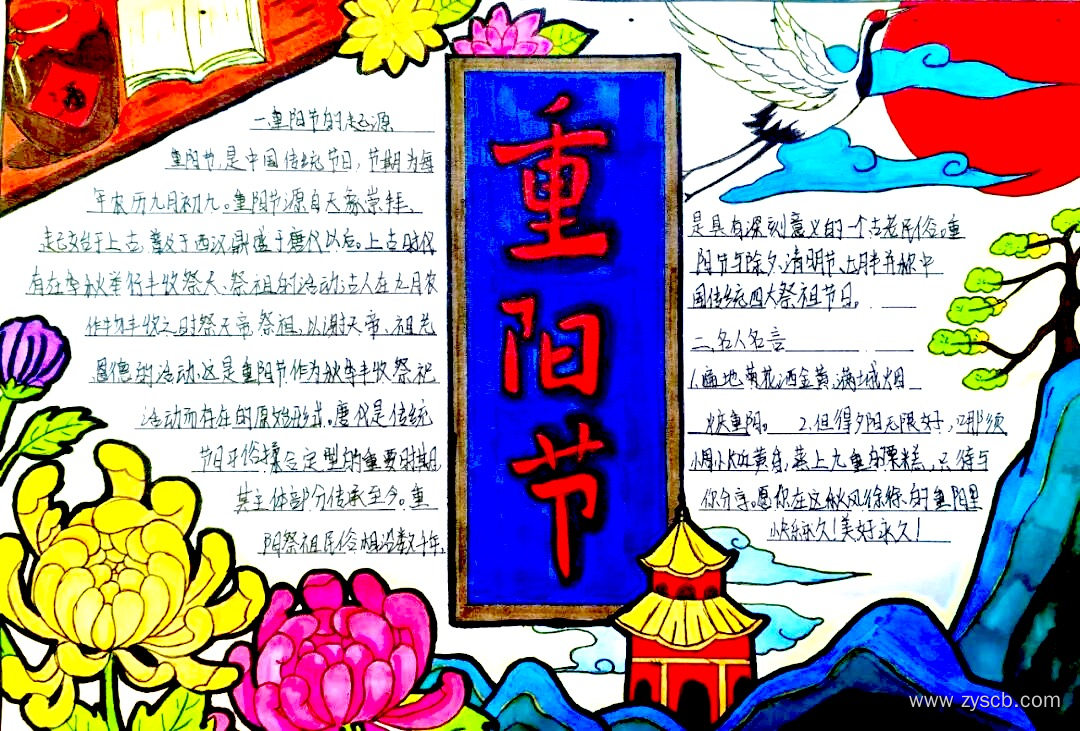 重阳节
一、重阳节的起源
重阳节，是中国传统节日，节期为每
年农历九月初九。重阳节源自天象崇拜，
起始于上古，普及于西汉，鼎盛于唐代以后。上古时代
有在季秋举行丰收祭天、祭祖的活动；古人在九月农
作物丰收之时祭天帝、祭祖，以谢天帝、祖先
恩德的活动，这是重阳节作为秋季丰收祭祀
活动而存在的原始形式。唐代是传统
节日习俗揉合定型的重要时期，
其主体部分传承至今。重
阳祭祖民俗相沿数千年，
是具有深刻意义的一个古老民俗。重
阳节与除夕、清明节、七月半并称中
国传统四大祭祖节日。
二、名人名言
1.遍地黄花洒金黄，满城烟
火庆重阳。 2.但得夕阳无限好，何须
惆怅近黄昏，蒸上九重的栗糕，只待与
你分享。愿你在这秋风徐徐的重阳里
快乐永久！美好永久！
www.zyscb.com